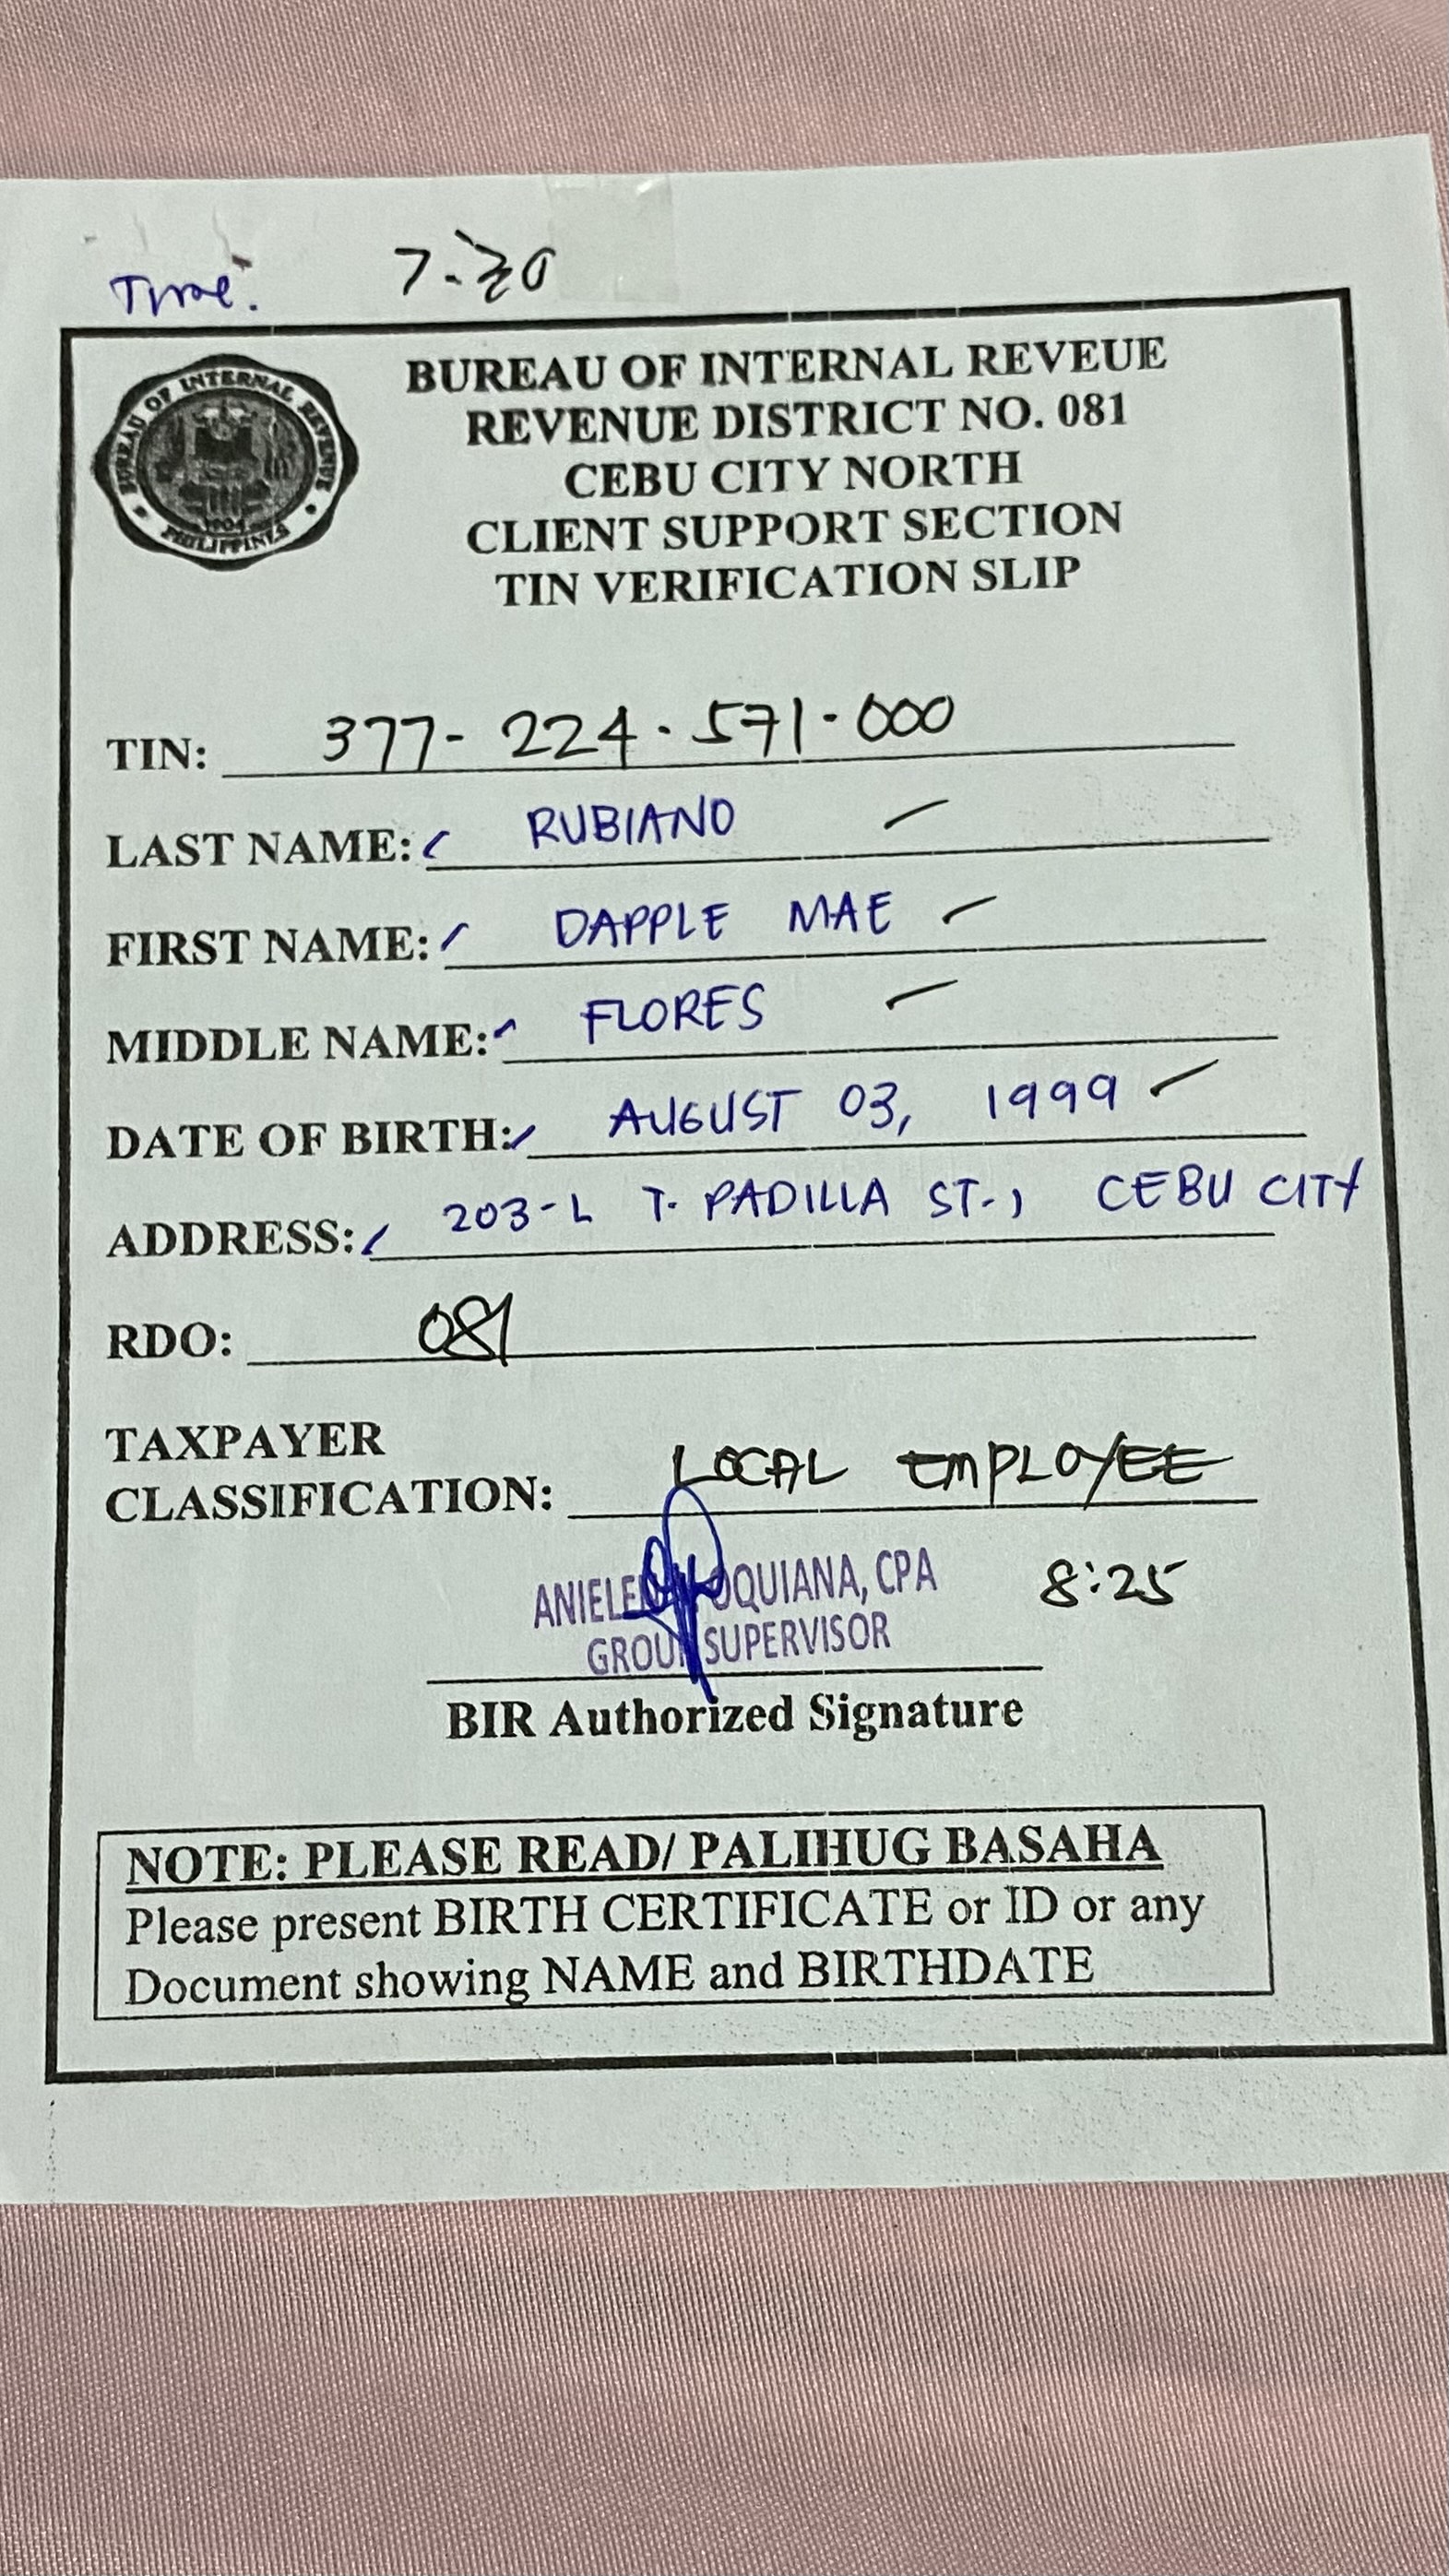 Time: 7-30
BUREAU OF INTERNAL REVENUE
PHILIPPINES
1904
BUREAU OF INTERNAL REVEUE
REVENUE DISTRICT NO. 081
CEBU CITY NORTH
CLIENT SUPPORT SECTION
TIN VERIFICATION SLIP
TIN: 377-224-571-000
LAST NAME: RUBIANO
FIRST NAME: DAPPLE MAE
MIDDLE NAME: FLORES
DATE OF BIRTH: AUGUST 03, 1999
ADDRESS: 203-L T. PADILLA ST., CEBU CITY
RDO: 081
TAXPAYER
CLASSIFICATION: LOCAL EMPLOYEE
CPA 8:25
GROUP SUPERVISOR
BIR Authorized Signature
NOTE: PLEASE READ/ PALIHUG BASAHA
Please present BIRTH CERTIFICATE or ID or any
Document showing NAME and BIRTHDATE